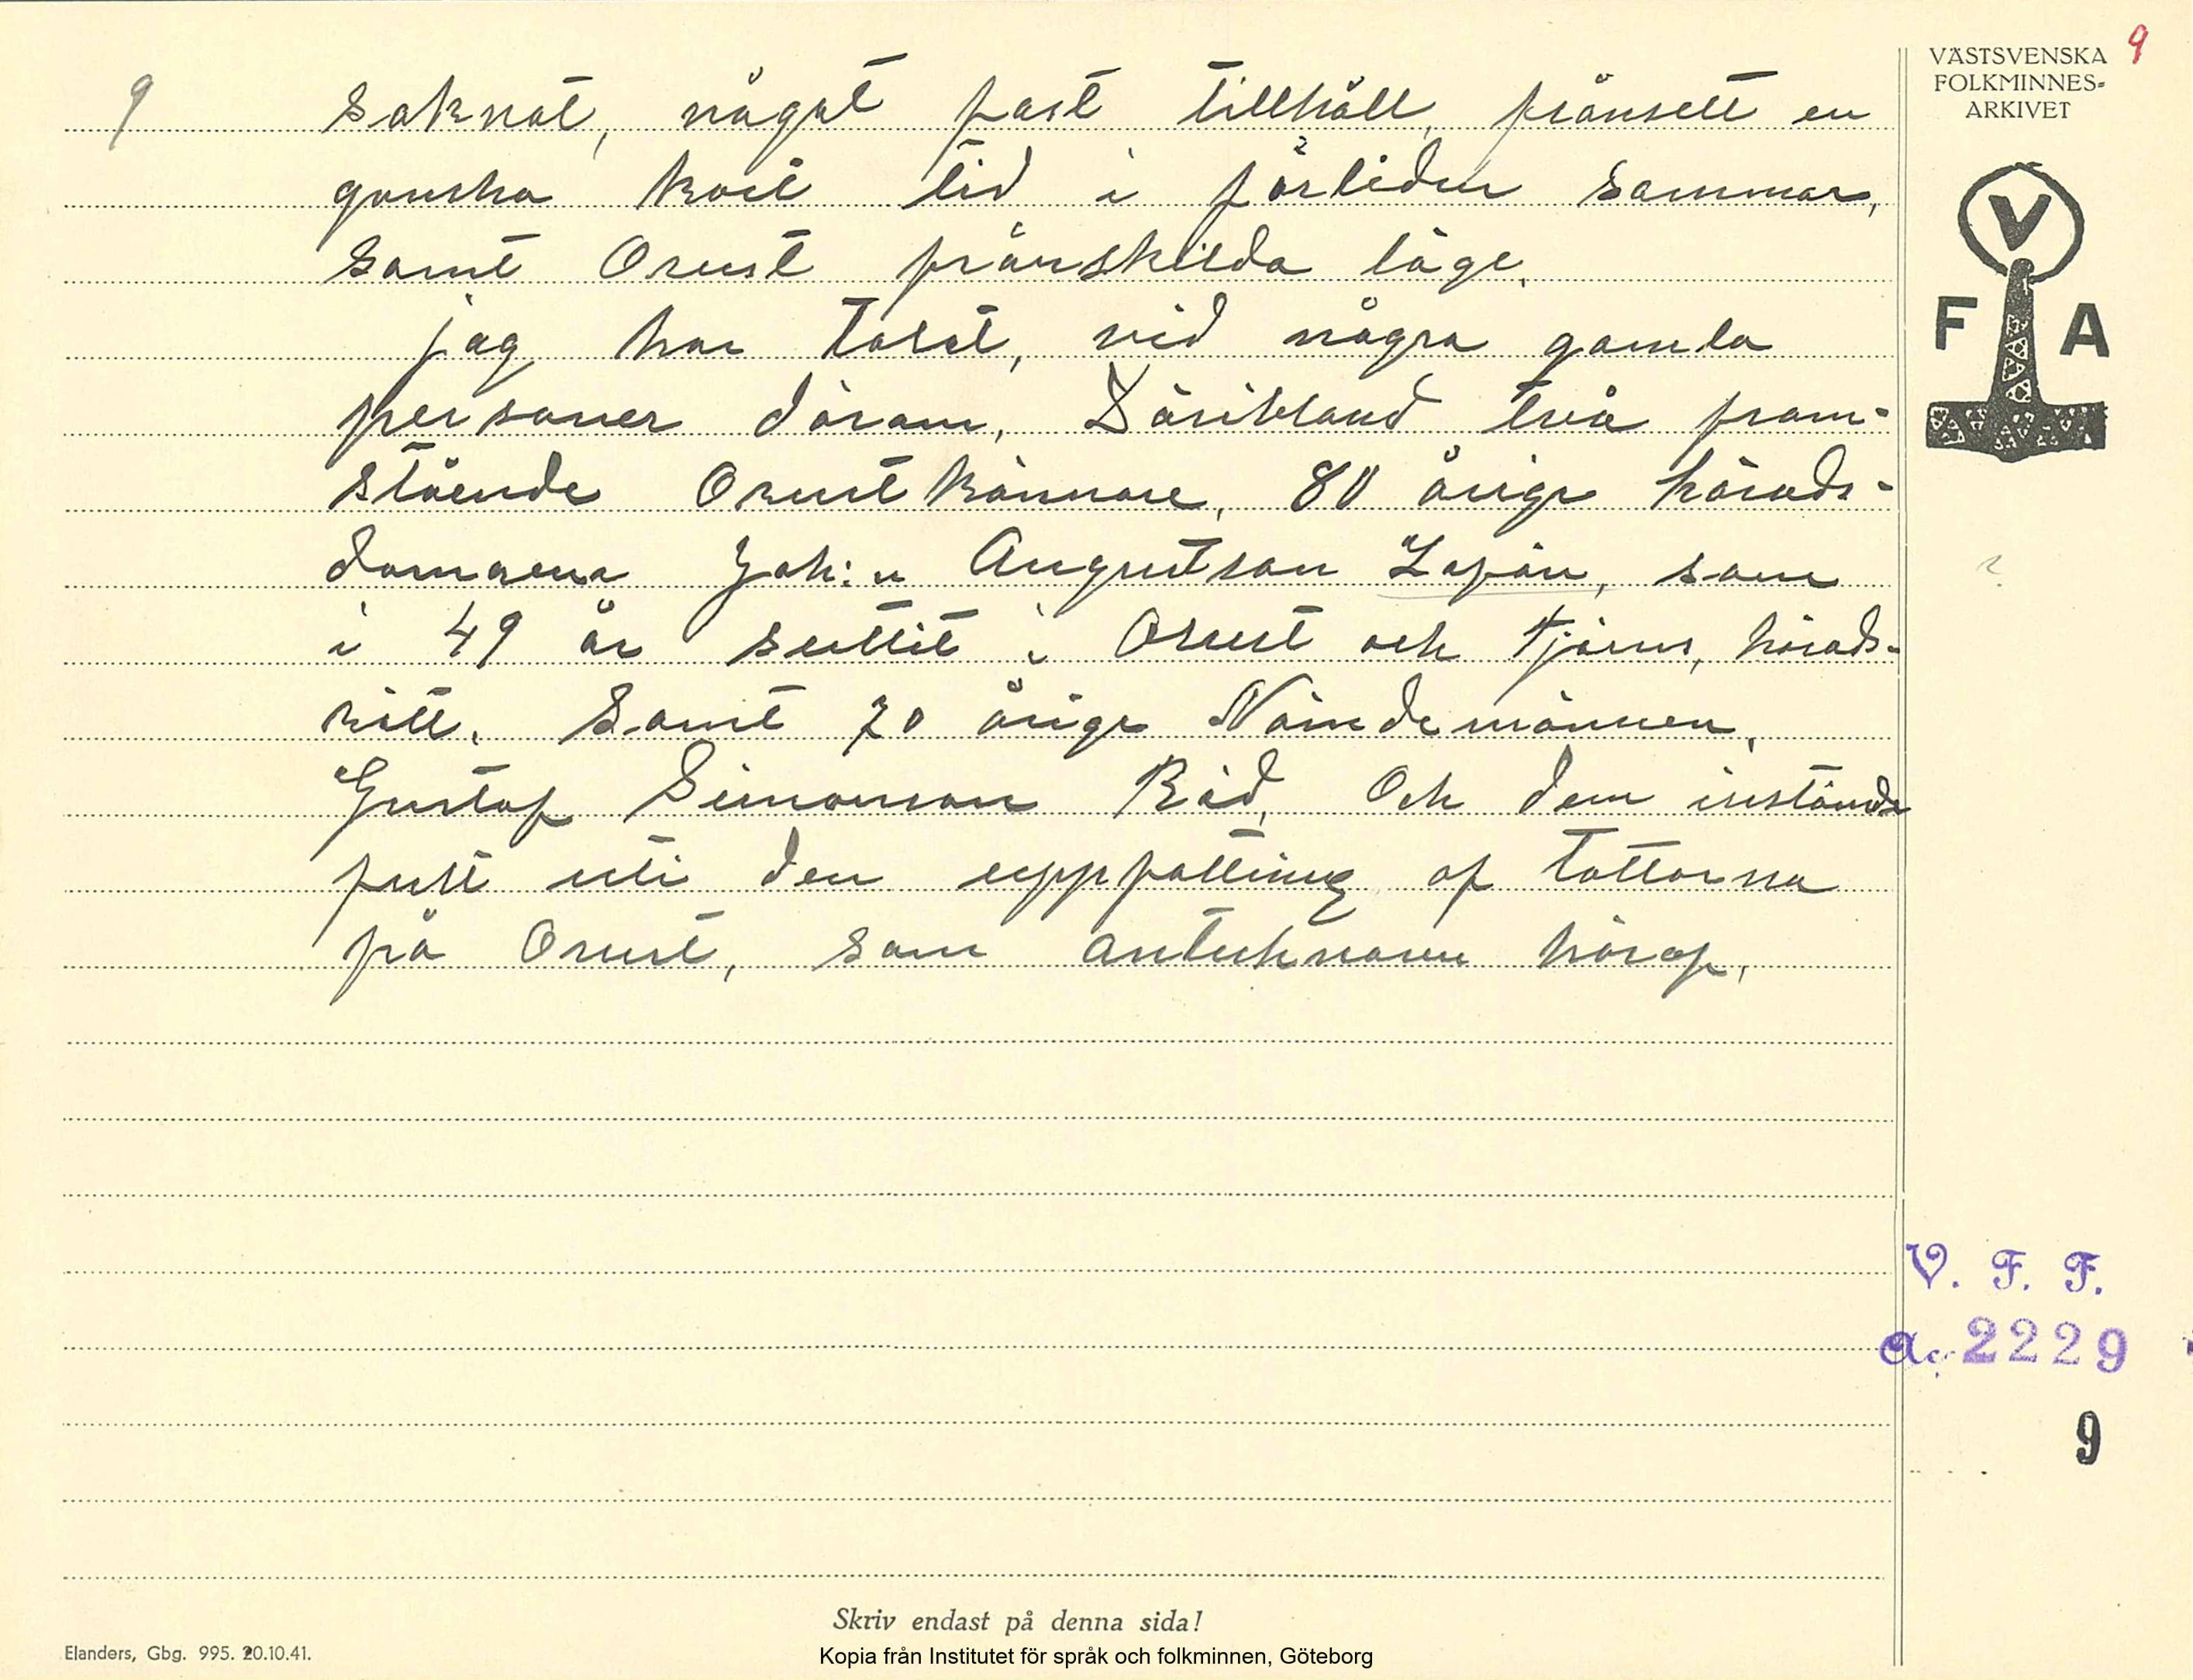 9
VÄSTSVENSKA
FOLKMINNES-
ARKIVET
9
saknat, något fast tillhåll, frånsett en
ganska kort tid i förliden sommar,
samt Orust frånskilda läge.
jag har talat, vid några gamla
personer därom, Däribland två fram-
stående Orustkännare, 80 årige härads-
domaren Joh:n Augustson Lafön, som
i 49 år suttit i Orust och Tjörns, härads-
rätt. Samt 70 årige Nämdemännen,
Gustaf Simonson Röd, Och dem instämde
fullt uti den uppfattning af Tattarna
på Orust, som antecknaren häraf,
V
F A
?
V. F. F.
Ac. 2229
9
Skriv endast på denna sida!
Elanders, Gbg. 995. 20.10.41.
Kopia från Institutet för språk och folkminnen, Göteborg